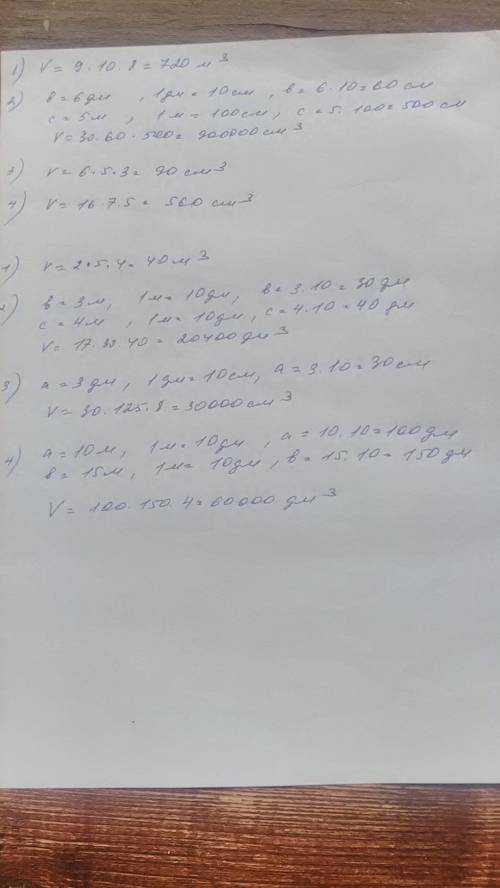 1) V = 9 · 10 · 8 = 720 м³
2) в = 6 дм , 1 дм = 10 см , в = 6 · 10 = 60 см
с = 5 м , 1 м = 100 см , с = 5 · 100 = 500 см
V = 30 · 60 · 500 = 900000 см³
3) V = 6 · 5 · 3 = 90 см³
4) V = 16 · 7 · 5 = 560 см³
1) V = 2 · 5 · 4 = 40 м³
2) в = 3 м, 1 м = 10 дм, в = 3 · 10 = 30 дм
с = 4 м , 1 м = 10 дм , с = 4 · 10 = 40 дм
V = 17 · 30 · 40 = 20400 дм³
3) а = 3 дм, 1 дм = 10 см, а = 3 · 10 = 30 см
V = 30 · 125 · 8 = 30000 см³
4) а = 10 м, 1 м = 10 дм , а = 10 · 10 = 100 дм
в = 15 м, 1 м = 10 дм , в = 15 · 10 = 150 дм
V = 100 · 150 · 4 = 60000 дм³